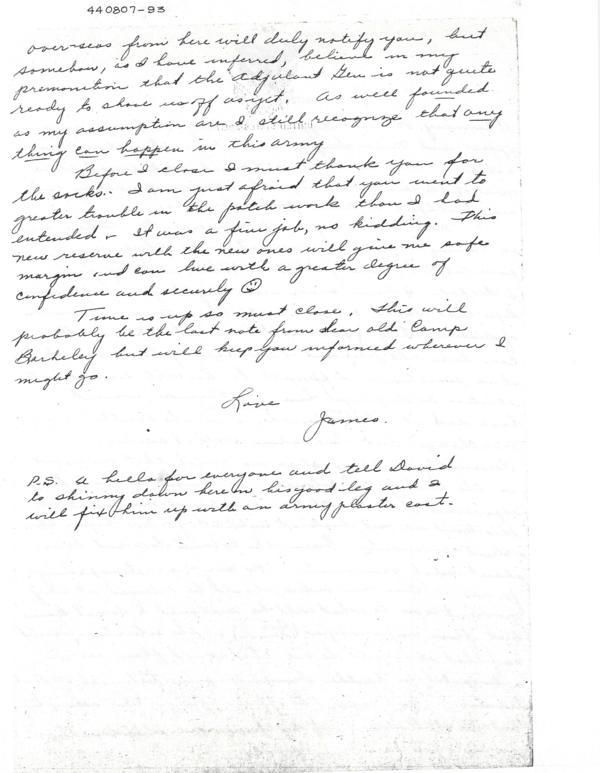 440807-93
over-seas from here will duly notify you, but
somehow, as I have inferred, believe in my
premonition that the Adjutant Gen is not quite
ready to shove us off as yet. As well founded
as my assumption are I still recognize that any
thing can happen in this army
Before I close I must thank you for
the socks. I am just afraid that you went to
greater trouble in the patch work than I had
entended. It was a fine job, no kidding. This
new reserve with the new ones will give me safe
margin and can live with a greater degree of
confidence and securely ☺
Time is up so must close. This will
probably be the last note from dear old Camp
Barkeley but will keep you informed wherever I
might go.
Love
James.
P.S. A hello for everyone and tell David
to shinny down here on his good leg and I
will fix him up with an army plaster cast.